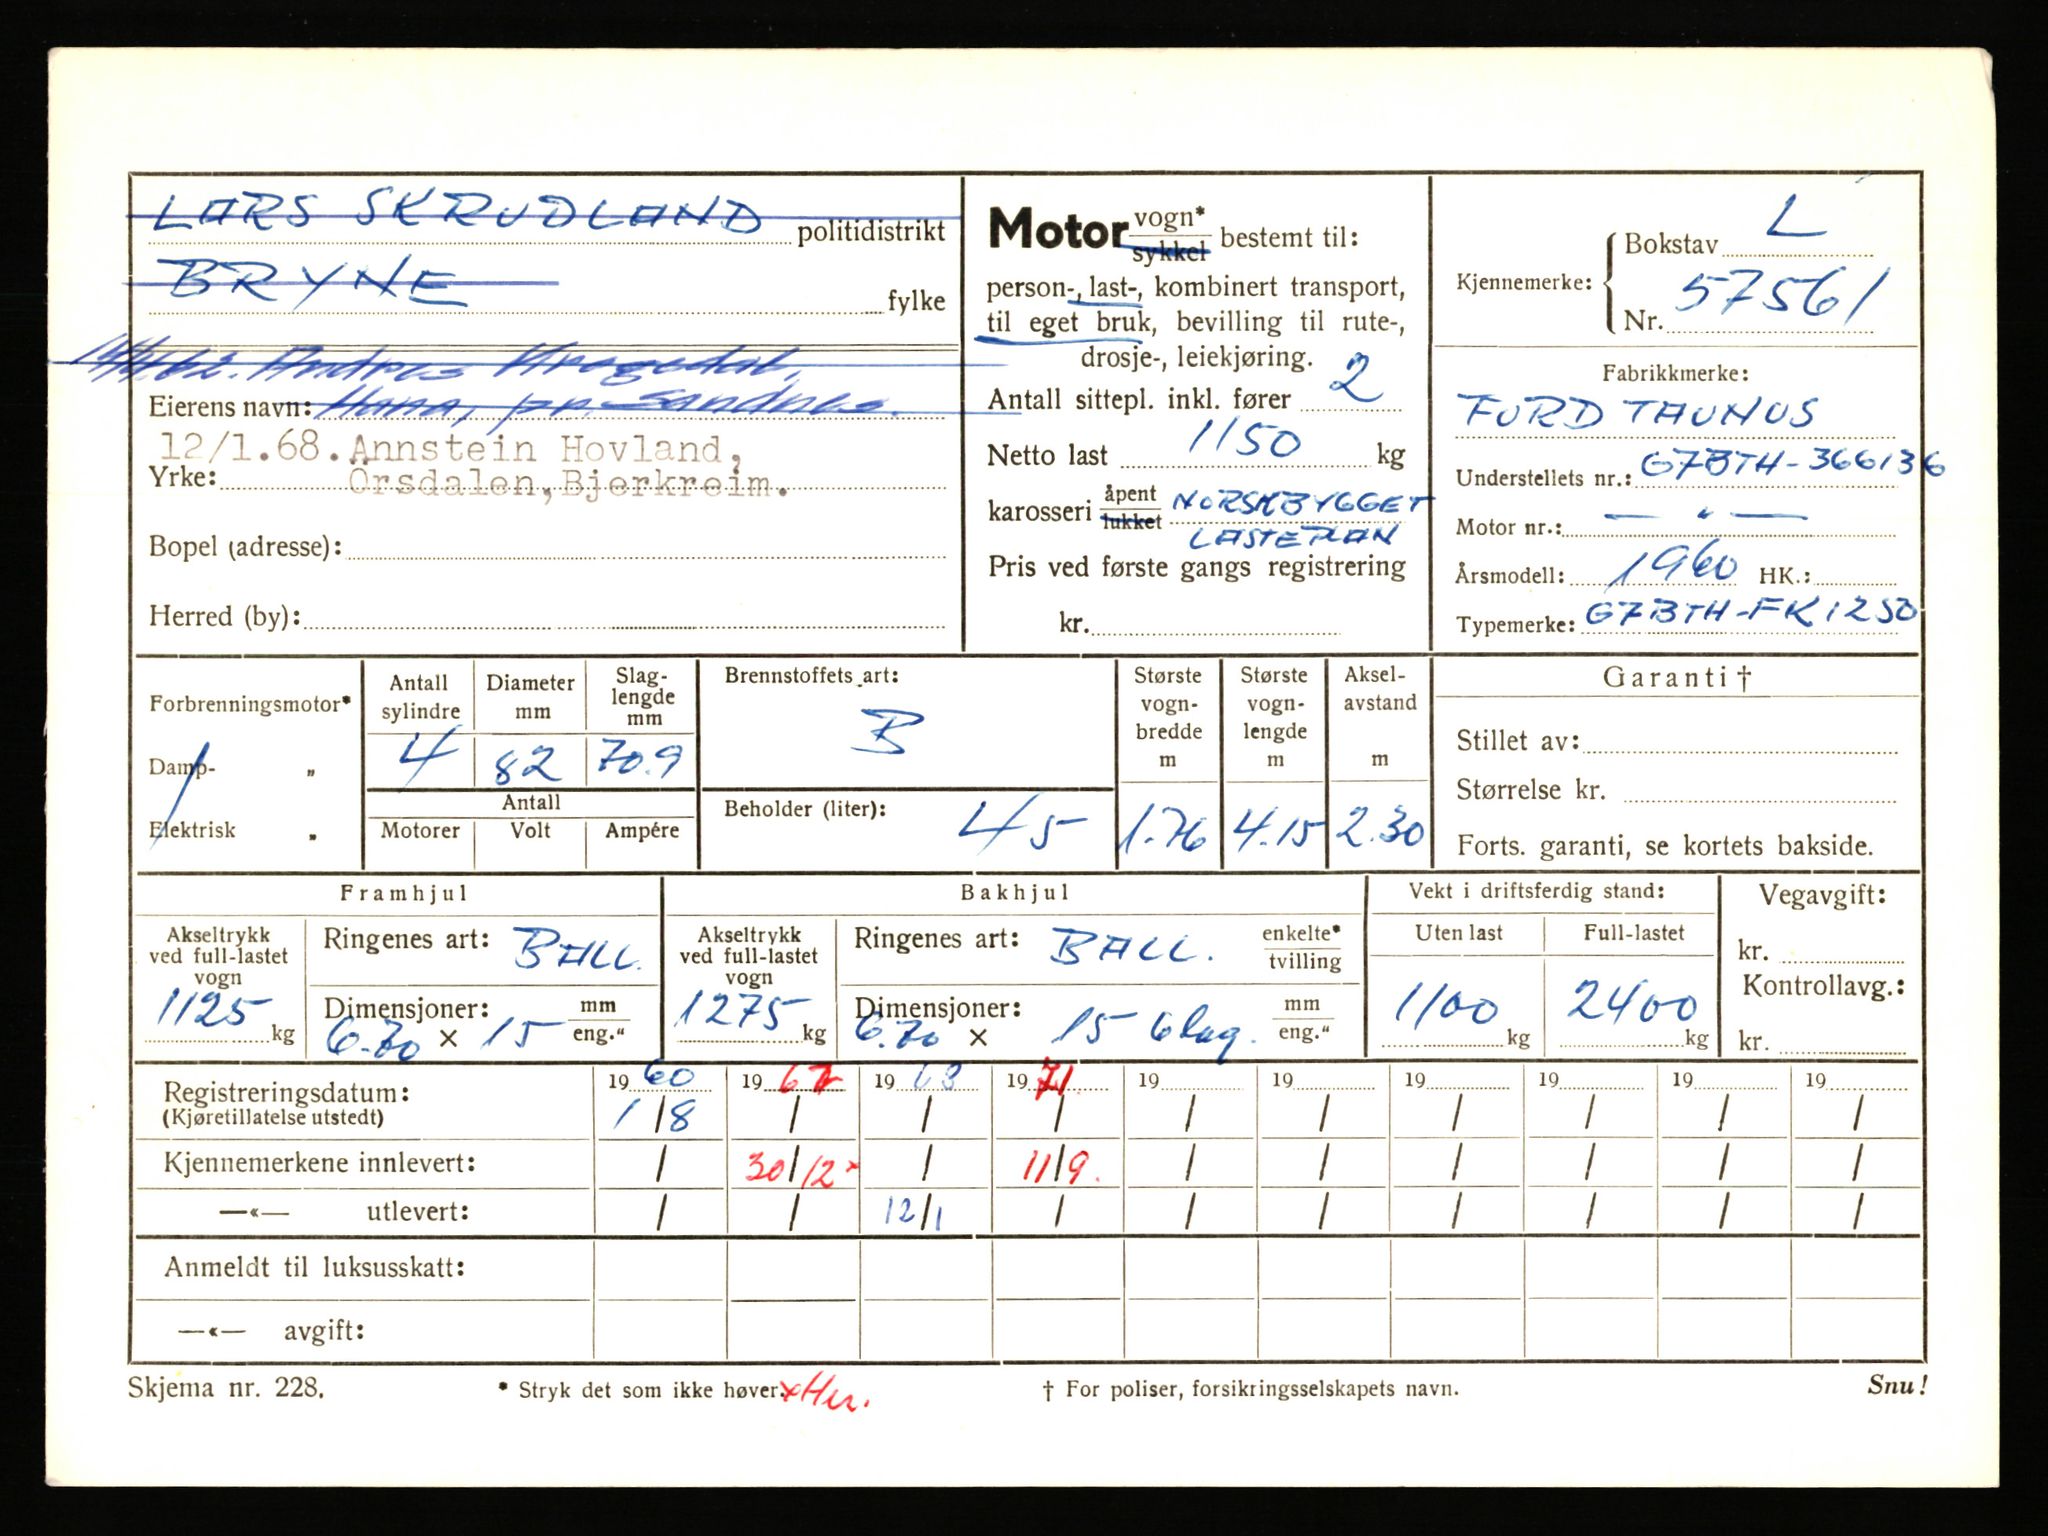 LARS SKRUDLAND politidistrikt
BRYNE fylke
Andreas
Eierens navn: Hana, pr. Sandnes.
12/1.68. Annstein Hovland,
Yrke: Örsdalen, Bjerkreim.
Bopel (adresse):
Herred (by):
Motor vogn* / sykkel bestemt til:
person-, last-, kombinert transport,
til eget bruk, bevilling til rute-,
drosje-, leiekjøring.
Antall sittepl. inkl. fører 2
Netto last 1150 kg
karosseri åpent / lukket NORSKBYGGET
LASTEPLAN
Pris ved første gangs registrering
kr.
Kjennemerke: Bokstav L
Nr. 57561
Fabrikkmerke:
FORD TAUNUS
Understellets nr.: G7BTH-366136
Motor nr.: — " —
Årsmodell: 1960 HK.:
Typemerke: G7BTH-FK1250
Forbrenningsmotor*
Damp- "
Elektrisk "
Antall sylindre Diameter mm Slag-lengde mm
4 82 70.9
Antall
Motorer Volt Ampére
Brennstoffets art:
B
Beholder (liter): 45
Største vogn-bredde m Største vogn-lengde m Aksel-avstand m
1.76 4.15 2.30
Garanti †
Stillet av:
Størrelse kr.
Forts. garanti, se kortets bakside.
Framhjul
Akseltrykk ved full-lastet vogn
1125 kg
Ringenes art: BALL.
Dimensjoner: mm / eng."
6.70 × 15
Bakhjul
Akseltrykk ved full-lastet vogn
1275 kg
Ringenes art: BALL. enkelte* / tvilling
Dimensjoner: mm / eng."
6.70 × 15 6 lag.
Vekt i driftsferdig stand:
Uten last Full-lastet
1100 kg 2400 kg
Vegavgift:
kr.
Kontrollavg.:
kr.
Registreringsdatum: 19 60 19 67 19 68 19 71 19 19 19 19 19 19
(Kjøretillatelse utstedt) 1/8 / / / / / / / / /
Kjennemerkene innlevert: / 30/12× / 11/9. / / / / / /
—«— utlevert: / / 12/1 / / / / / / /
Anmeldt til luksusskatt:
—«— avgift:
Skjema nr. 228. * Stryk det som ikke høver. † For poliser, forsikringsselskapets navn. Snu!